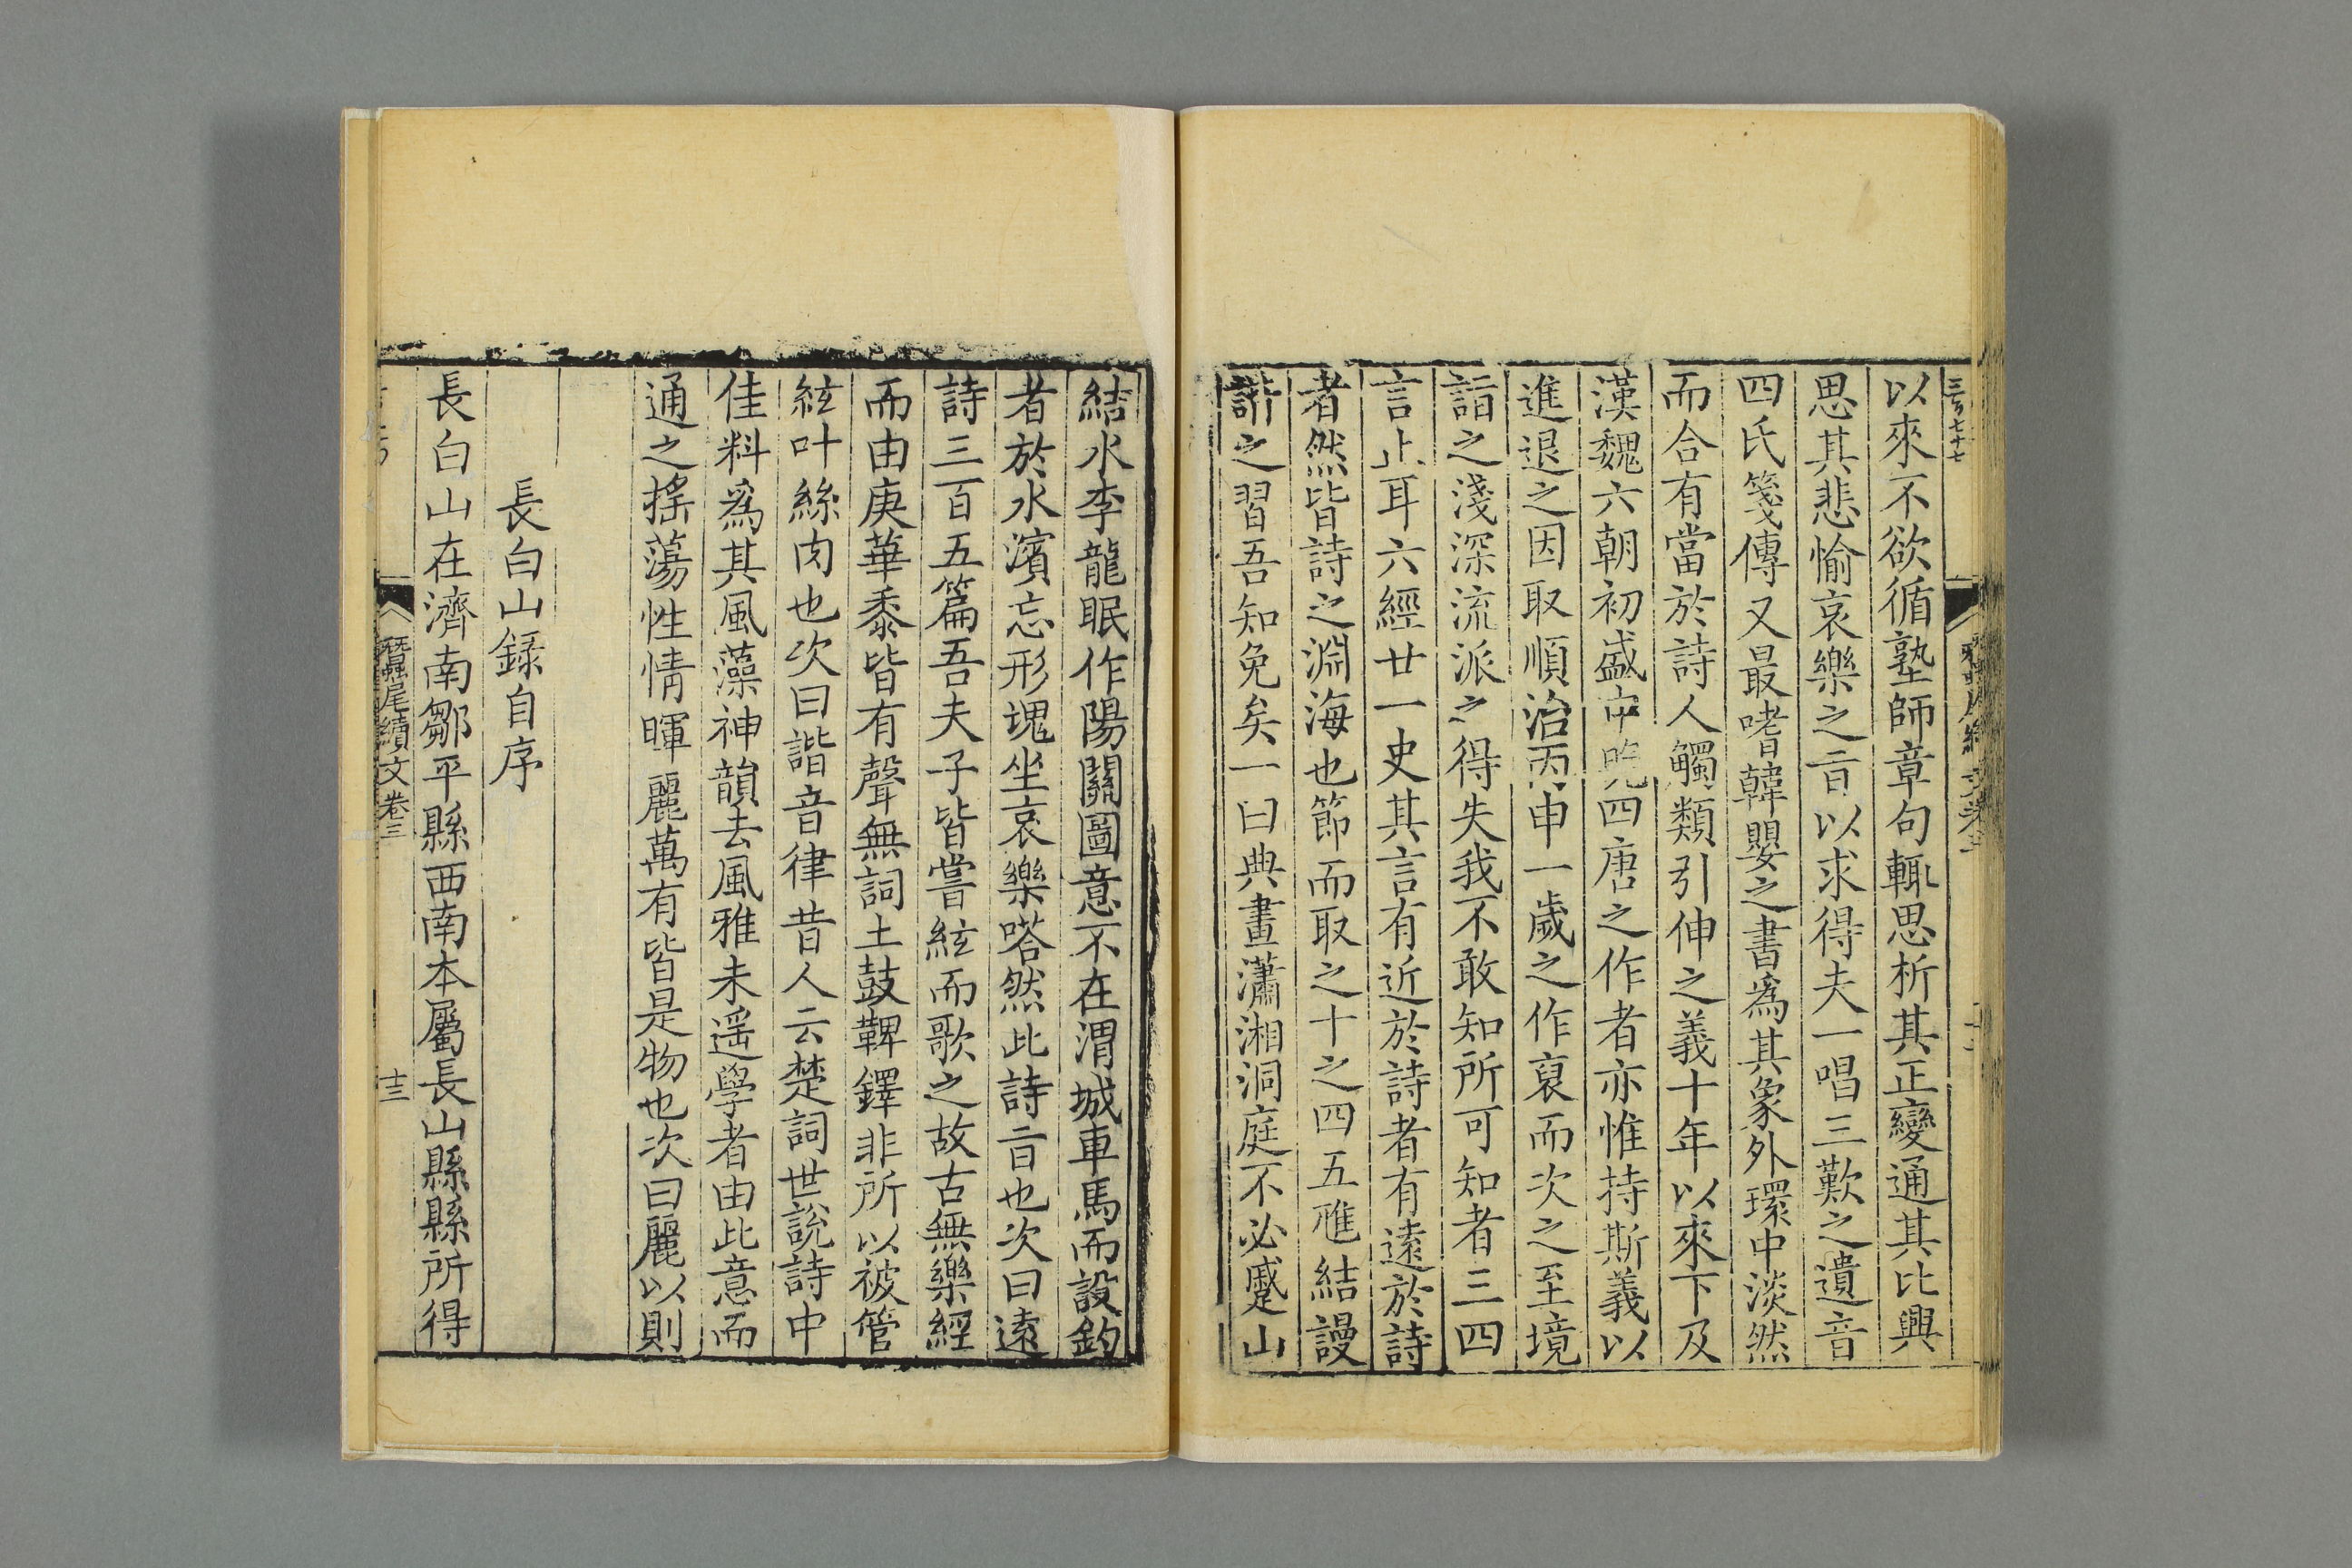 三百七十七
以來不欲循塾師章句輙思析其正變通其比興
思其悲愉哀樂之㫖以求得夫一唱三歎之遺音
四氏箋傳又最嗜韓嬰之書爲其象外環中淡然
而合有當於詩人觸類引伸之義十年以來下及
漢魏六朝初盛中晚四唐之作者亦惟持斯義以
進退之因取順治丙申一歲之作裒而次之至境
詣之淺深流派之得失我不敢知所可知者三四
言止耳六經廿一史其言有近於詩者有遠於詩
者然皆詩之淵海也節而取之十之四五雕結謾
諧之習吾知免矣一曰典畫瀟湘洞庭不必蹙山
結水李龍眠作陽關圖意不在渭城車馬而設釣
者於水濱忘形塊坐哀樂嗒然此詩㫖也次曰遠
詩三百五篇吾夫子皆嘗絃而歌之故古無樂經
而由庚華黍皆有聲無詞土鼓鞞鐸非所以被管
絃叶絲肉也次曰諧音律昔人云楚詞世說詩中
佳料爲其風藻神韻去風雅未遥學者由此意而
通之搖蕩性情暉麗萬有皆是物也次曰麗以則
長白山録自序
長白山在濟南鄒平縣西南本屬長山縣縣所得
蠶尾續文卷三
十三